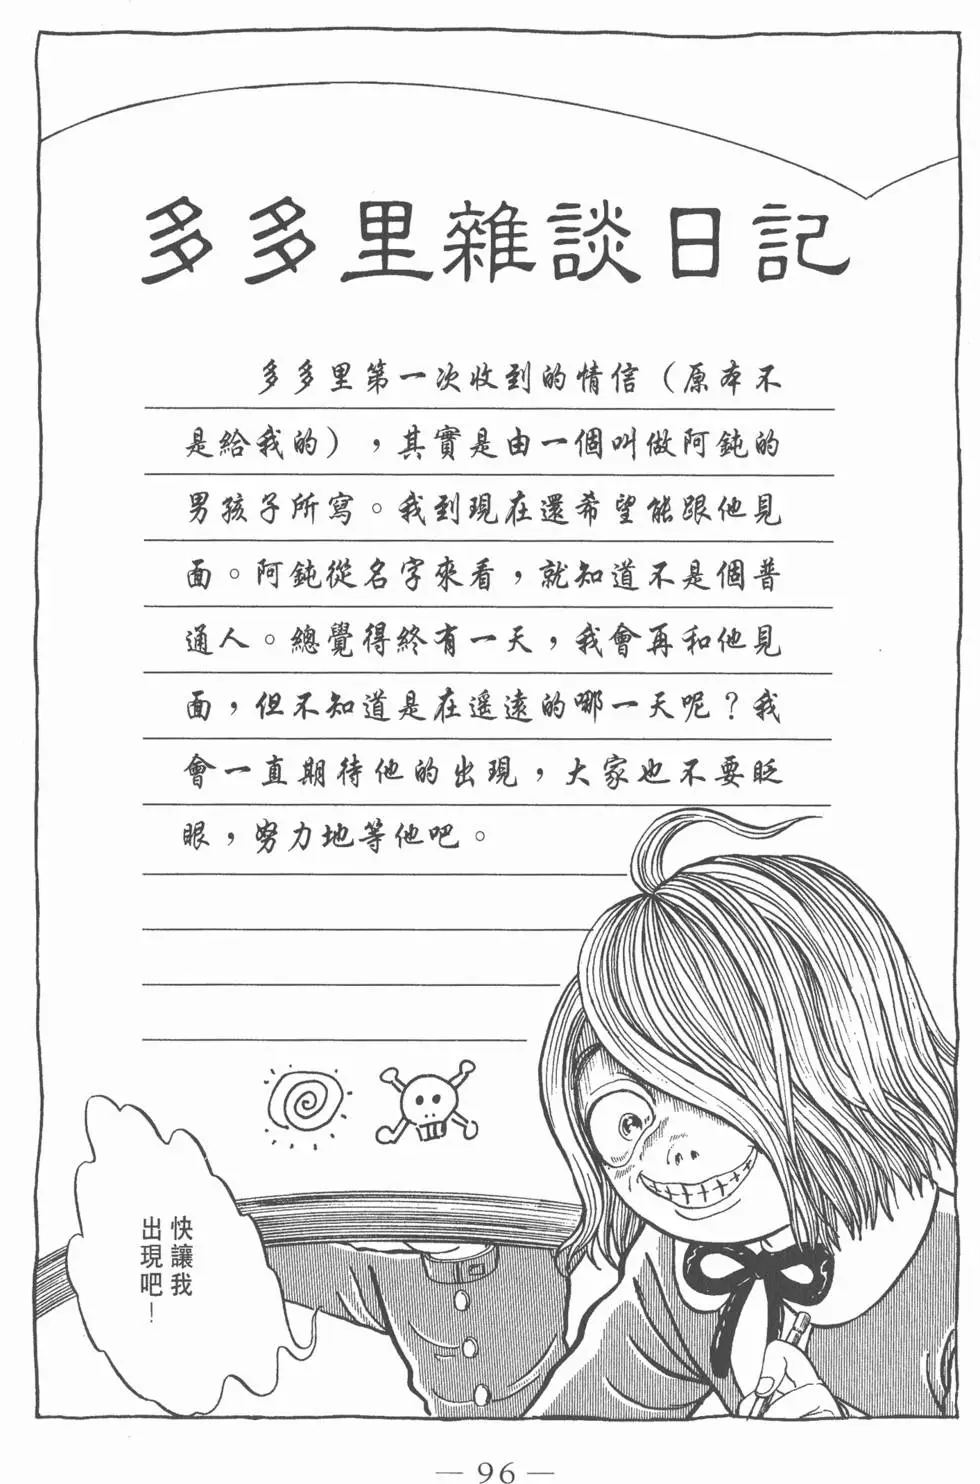 多多里雜談日記
多多里第一次收到的情信（原本不
是給我的），其實是由一個叫做阿鈍的
男孩子所寫。我到現在還希望能跟他見
面。阿鈍從名字來看，就知道不是個普
通人。總覺得終有一天，我會再和他見
面，但不知道是在遥遠的哪一天呢？我
會一直期待他的出現，大家也不要眨
眼，努力地等他吧。
快讓我
出現吧！
— 96 —